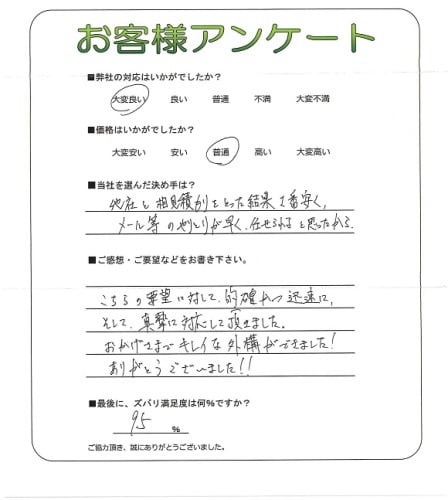 お客様アンケート
■弊社の対応はいかがでしたか？
大変良い 良い 普通 不満 大変不満
■価格はいかがでしたか？
大変安い 安い 普通 高い 大変高い
■当社を選んだ決め手は？
他社と相見積りをとった結果1番安く、
メール等のやりとりが早く、任せられると思ったから。
■ご感想・ご要望などをお書き下さい。
こちらの要望に対して、的確かつ迅速に、
そして、真摯に対応して頂きました。
おかげさまでキレイな外構ができました！
ありがとうございました！！
■最後に、ズバリ満足度は何％ですか？
95 ％
ご協力頂き、誠にありがとうございました。